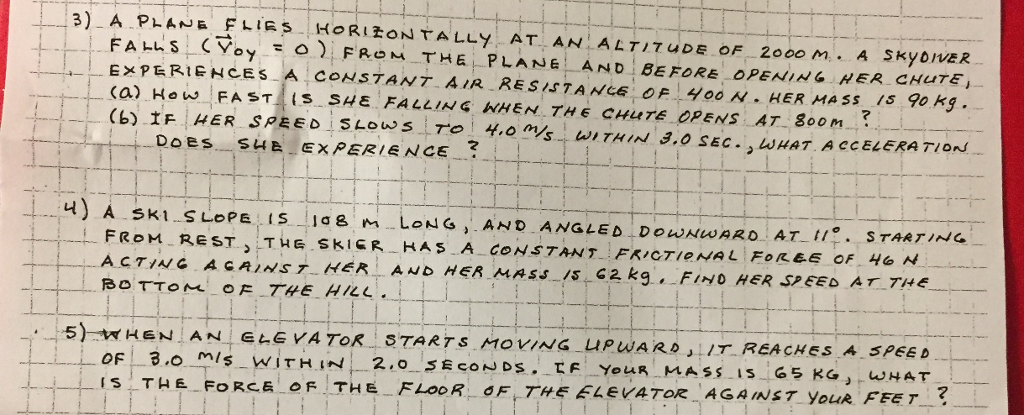 3) A PLANE FLIES HORIZONTALLY AT AN ALTITUDE OF 2000 M. A SKYDIVER
FALLS (V⃗oy = 0) FROM THE PLANE AND BEFORE OPENING HER CHUTE,
EXPERIENCES A CONSTANT AIR RESISTANCE OF 400 N. HER MASS IS 90 kg.
(a) HOW FAST IS SHE FALLING WHEN THE CHUTE OPENS AT 800m ?
(b) IF HER SPEED SLOWS TO 4.0 m/s WITHIN 3.0 SEC., WHAT ACCELERATION
DOES SHE EXPERIENCE ?
4) A SKI SLOPE IS 108 m LONG, AND ANGLED DOWNWARD AT 11°. STARTING
FROM REST, THE SKIER HAS A CONSTANT FRICTIONAL FORCE OF 46 N
ACTING AGAINST HER AND HER MASS IS 62 kg. FIND HER SPEED AT THE
BOTTOM OF THE HILL.
5) WHEN AN ELEVATOR STARTS MOVING UPWARD, IT REACHES A SPEED
OF 3.0 m/s WITHIN 2.0 SECONDS. IF YOUR MASS IS 65 KG, WHAT
IS THE FORCE OF THE FLOOR OF THE ELEVATOR AGAINST YOUR FEET ?